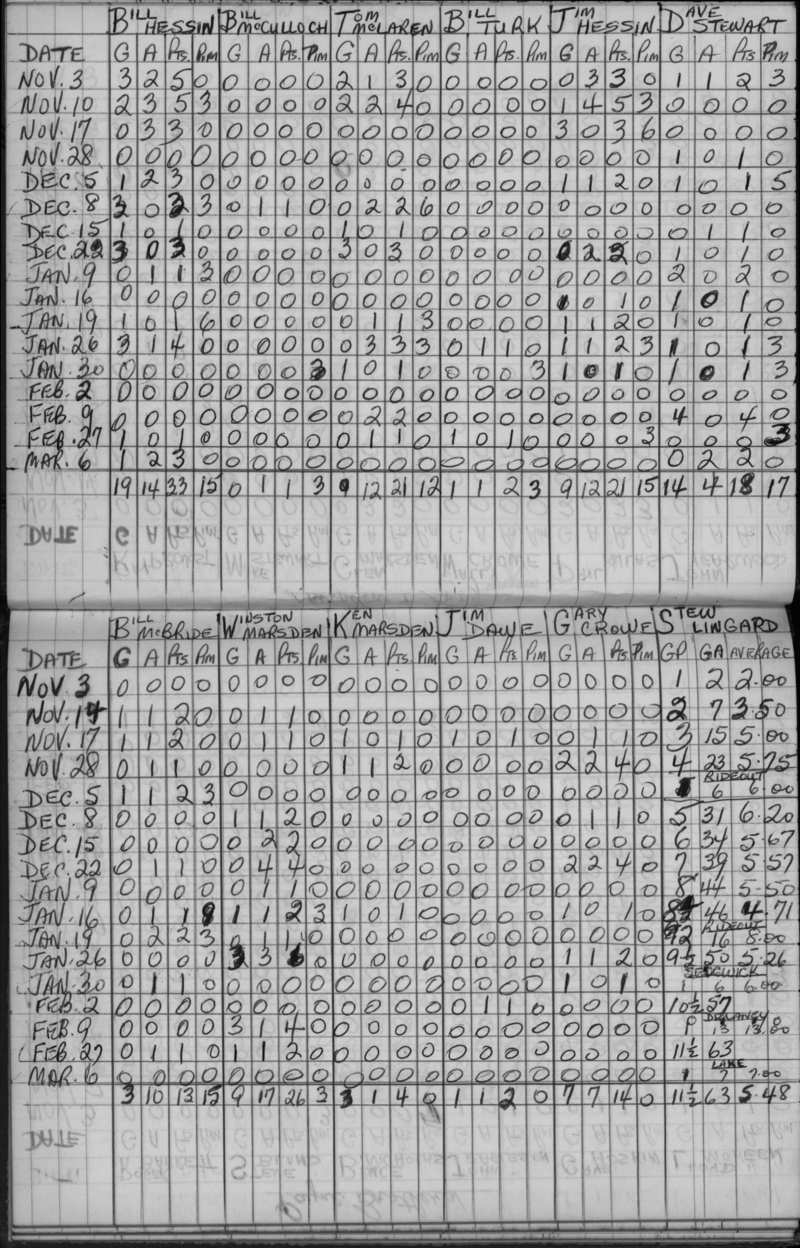 BILL HESSIN BILL McCULLOCH TOM McLAREN BILL TURK JIM HESSIN DAVE STEWART
DATE G A Pts. Pim G A Pts. Pim G A Pts Pim G A Pts. Pim G A Pts Pim G A Pts Pim
NOV. 3 3 2 5 0 0 0 0 0 2 1 3 0 0 0 0 0 0 3 3 0 1 1 2 3
NOV. 10 2 3 5 3 0 0 0 0 2 2 4 0 0 0 0 0 1 4 5 3 0 0 0 0
NOV. 17 0 3 3 0 0 0 0 0 0 0 0 0 0 0 0 0 3 0 3 6 0 0 0 0
NOV. 28 0 0 0 0 0 0 0 0 0 0 0 0 0 0 0 0 0 0 0 0 1 0 1 0
DEC. 5 1 2 3 0 0 0 0 0 0 0 0 0 0 0 0 0 1 1 2 0 1 0 1 5
DEC. 8 3 0 3 3 0 1 1 0 0 2 2 6 0 0 0 0 0 0 0 0 0 0 0 0
DEC. 15 1 0 1 0 0 0 0 0 1 0 1 0 0 0 0 0 0 0 0 0 0 1 1 0
DEC. 22 3 0 3 0 0 0 0 0 3 0 3 0 0 0 0 0 0 2 2 0 1 0 1 0
JAN. 9 0 1 1 3 0 0 0 0 0 0 0 0 0 0 0 0 0 0 0 0 2 0 2 0
JAN. 16 0 0 0 0 0 0 0 0 0 0 0 0 0 0 0 0 1 0 1 0 1 0 1 0
JAN. 19 1 0 1 6 0 0 0 0 0 1 1 3 0 0 0 0 1 1 2 0 1 0 1 0
JAN. 26 3 1 4 0 0 0 0 0 0 3 3 3 0 1 1 0 1 1 2 3 1 0 1 3
JAN. 30 0 0 0 0 0 0 0 3 1 0 1 0 0 0 0 3 1 0 1 0 1 0 1 3
FEB. 2 0 0 0 0 0 0 0 0 0 0 0 0 0 0 0 0 0 0 0 0 0 0 0 0
FEB. 9 0 0 0 0 0 0 0 0 0 2 2 0 0 0 0 0 0 0 0 0 4 0 4 0
FEB. 27 1 0 1 0 0 0 0 0 0 1 1 0 1 0 1 0 0 0 0 3 0 0 0 3
MAR. 6 1 2 3 0 0 0 0 0 0 0 0 0 0 0 0 0 0 0 0 0 0 2 2 0
19 14 33 15 0 1 1 3 9 12 21 12 1 1 2 3 9 12 21 15 14 4 18 17
DATE G A Pts Pim
BILL McBRIDE WINSTON MARSDEN KEN MARSDEN JIM DAWE GARY CROWE STEW LINGARD
DATE G A Pts Pim G A Pts. Pim G A Pts Pim G A Pts. Pim G A Pts Pim GP GA AVERAGE
NOV. 3 0 0 0 0 0 0 0 0 0 0 0 0 0 0 0 0 0 0 0 0 1 2 2.00
NOV. 14 1 1 2 0 0 1 1 0 0 0 0 0 0 0 0 0 0 0 0 0 2 7 3.50
NOV. 17 1 1 2 0 0 1 1 0 1 0 1 0 1 0 1 0 0 1 1 0 3 15 5.00
NOV. 28 0 1 1 0 0 0 0 0 1 1 2 0 0 0 0 0 2 2 4 0 4 23 5.75
RIDEOUT
DEC. 5 1 1 2 3 0 0 0 0 0 0 0 0 0 0 0 0 0 0 0 0 1 6 6.00
DEC. 8 0 0 0 0 1 1 2 0 0 0 0 0 0 0 0 0 0 1 1 0 5 31 6.20
DEC. 15 0 0 0 0 0 2 2 0 0 0 0 0 0 0 0 0 0 0 0 0 6 34 5.67
DEC. 22 0 1 1 0 0 4 4 0 0 0 0 0 0 0 0 0 2 2 4 0 7 39 5.57
JAN. 9 0 0 0 0 0 1 1 0 0 0 0 0 0 0 0 0 0 0 0 0 8 44 5.50
JAN. 16 0 1 1 9 1 1 2 3 1 0 1 0 0 0 0 0 1 0 1 0 46 4.71
RIDEOUT
JAN. 19 0 2 2 3 0 1 1 0 0 0 0 0 0 0 0 0 0 0 0 0 2 16 8.00
JAN. 26 0 0 0 0 3 3 6 0 0 0 0 0 0 0 0 0 1 1 2 0 9½ 50 5.26
SEDGWICK
JAN. 30 0 1 1 0 0 0 0 0 0 0 0 0 0 0 0 0 1 0 1 0 1 6 6.00
FEB. 2 0 0 0 0 0 0 0 0 0 0 0 0 0 1 1 0 0 0 0 0 10½ 57
DELANEY
FEB. 9 0 0 0 0 3 1 4 0 0 0 0 0 0 0 0 0 0 0 0 0 1 13 13.00
FEB. 27 0 1 1 0 1 1 2 0 0 0 0 0 0 0 0 0 0 0 0 0 11½ 63
LAKE
MAR. 6 0 0 0 0 0 0 0 0 0 0 0 0 0 0 0 0 0 0 0 0 1 7 7.00
3 10 13 15 9 17 26 3 3 1 4 0 1 1 2 0 7 7 14 0 11½ 63 5.48
DATE